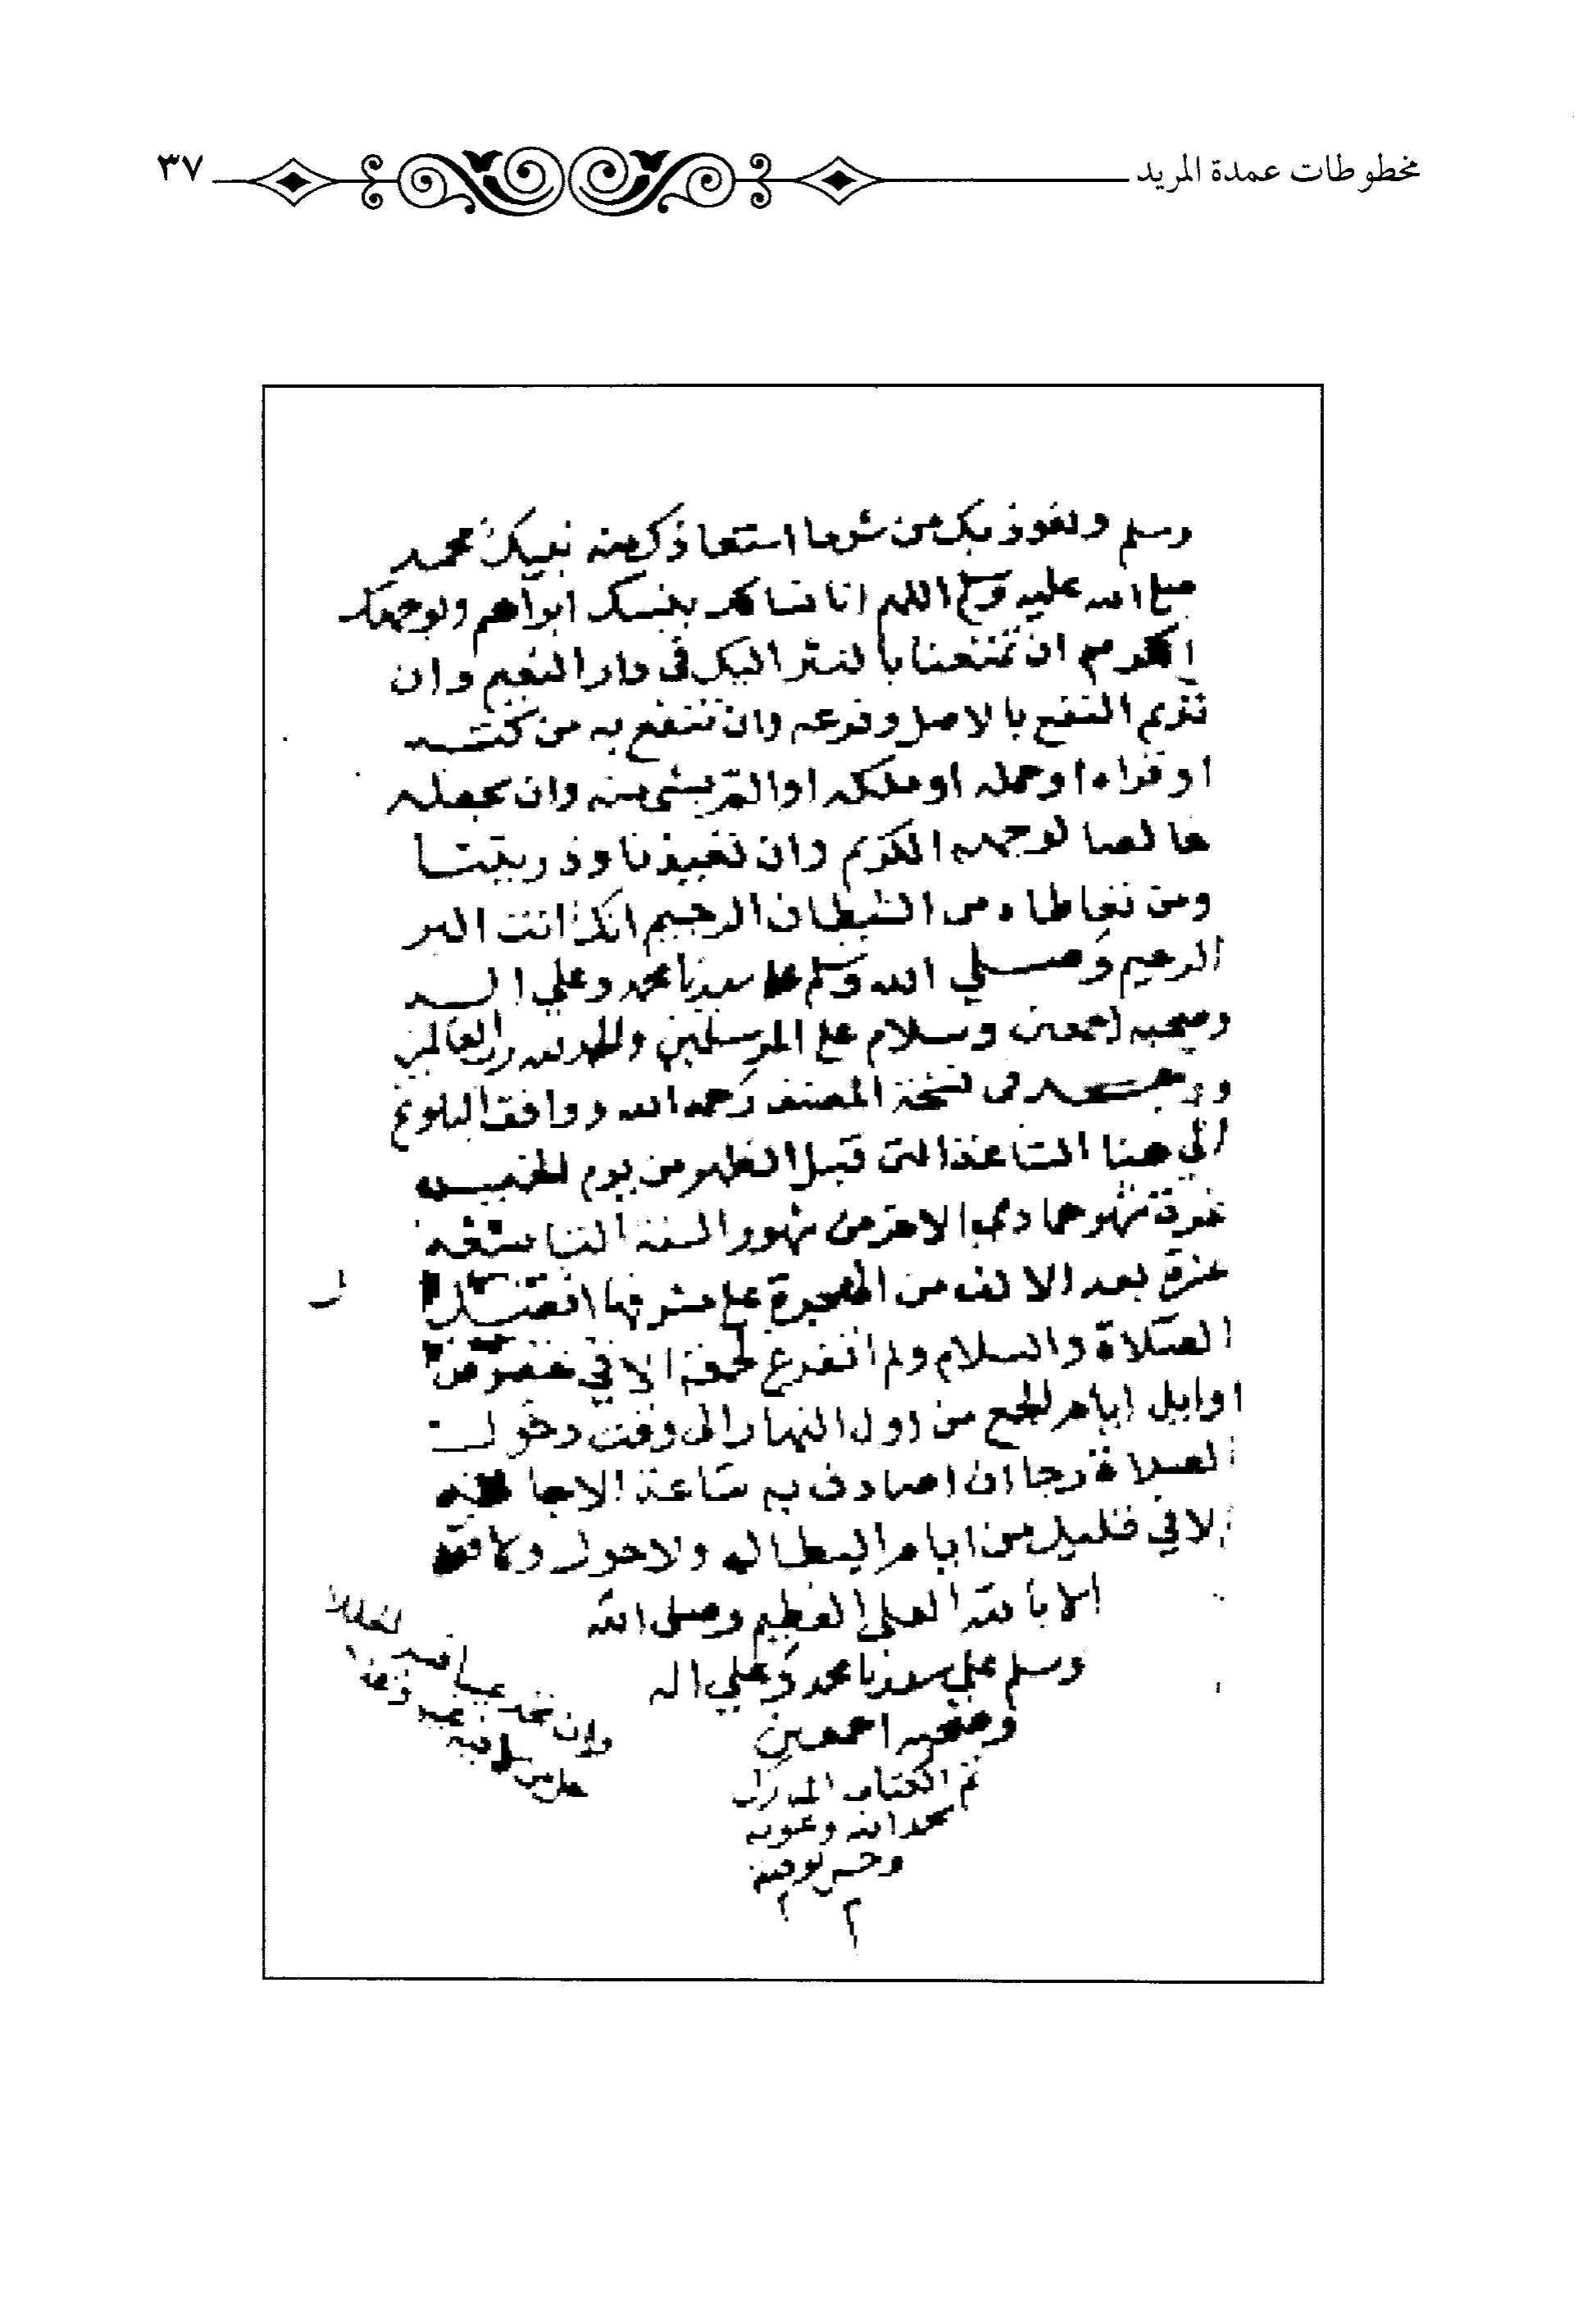 مخطوطات عمدة المريد
٣٧
وسلم ونعوذ بك من شر ما استعاذك منه نبيك محمد
صلى الله عليه وسلم اللهم انا نسالك بنبيك ابراهيم وبوجهك
الكريم ان تمتعنا بالنظر اليك في دار النعيم وان
تديم النفع بالاصل وفرعه وان تنفع به من كتبه
او قراه او حمله او ملكه او التمس منه وان تجعله
خالصا لوجهه الكريم وان تعيذنا وذريتنا
ومن تعاطاه من الشيطان الرجيم انك انت البر
الرحيم وصلي الله وسلم على سيدنا محمد وعلي اله
وصحبه اجمعين وسلام على المرسلين والحمد لله رب العالمين
ووجد في نسخة المصنف رحمه الله ووافق البلوغ
الي هنا الساعة التي قبل الظهر من يوم الخميس
غرة شهر جمادي الاخر من شهور السنة التاسعة
عشرة بعد الالف من الهجرة على مشرفها افضل
الصلاة والسلام ولم اتفرغ لجمعه الا في
اوايل ايام الجمع من اول النهار الى وقت دخول
الصلاة رجا ان اصادف به ساعة الاجابة
الا في قليل من ايام البطاله ولا حول ولا قوة
الا بالله العلي العظيم وصلى الله
وسلم علي سيدنا محمد وعلي اله
وصحبه اجمعين
تم الكتاب المبارك
بحمد الله وعونه
وحسن توفيقه
وان تجد عيبا فسد الخللا